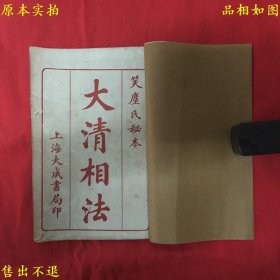 原本实拍
品相如图
笑塵氏秘本
大清相法
上海大成書局印
售出不退